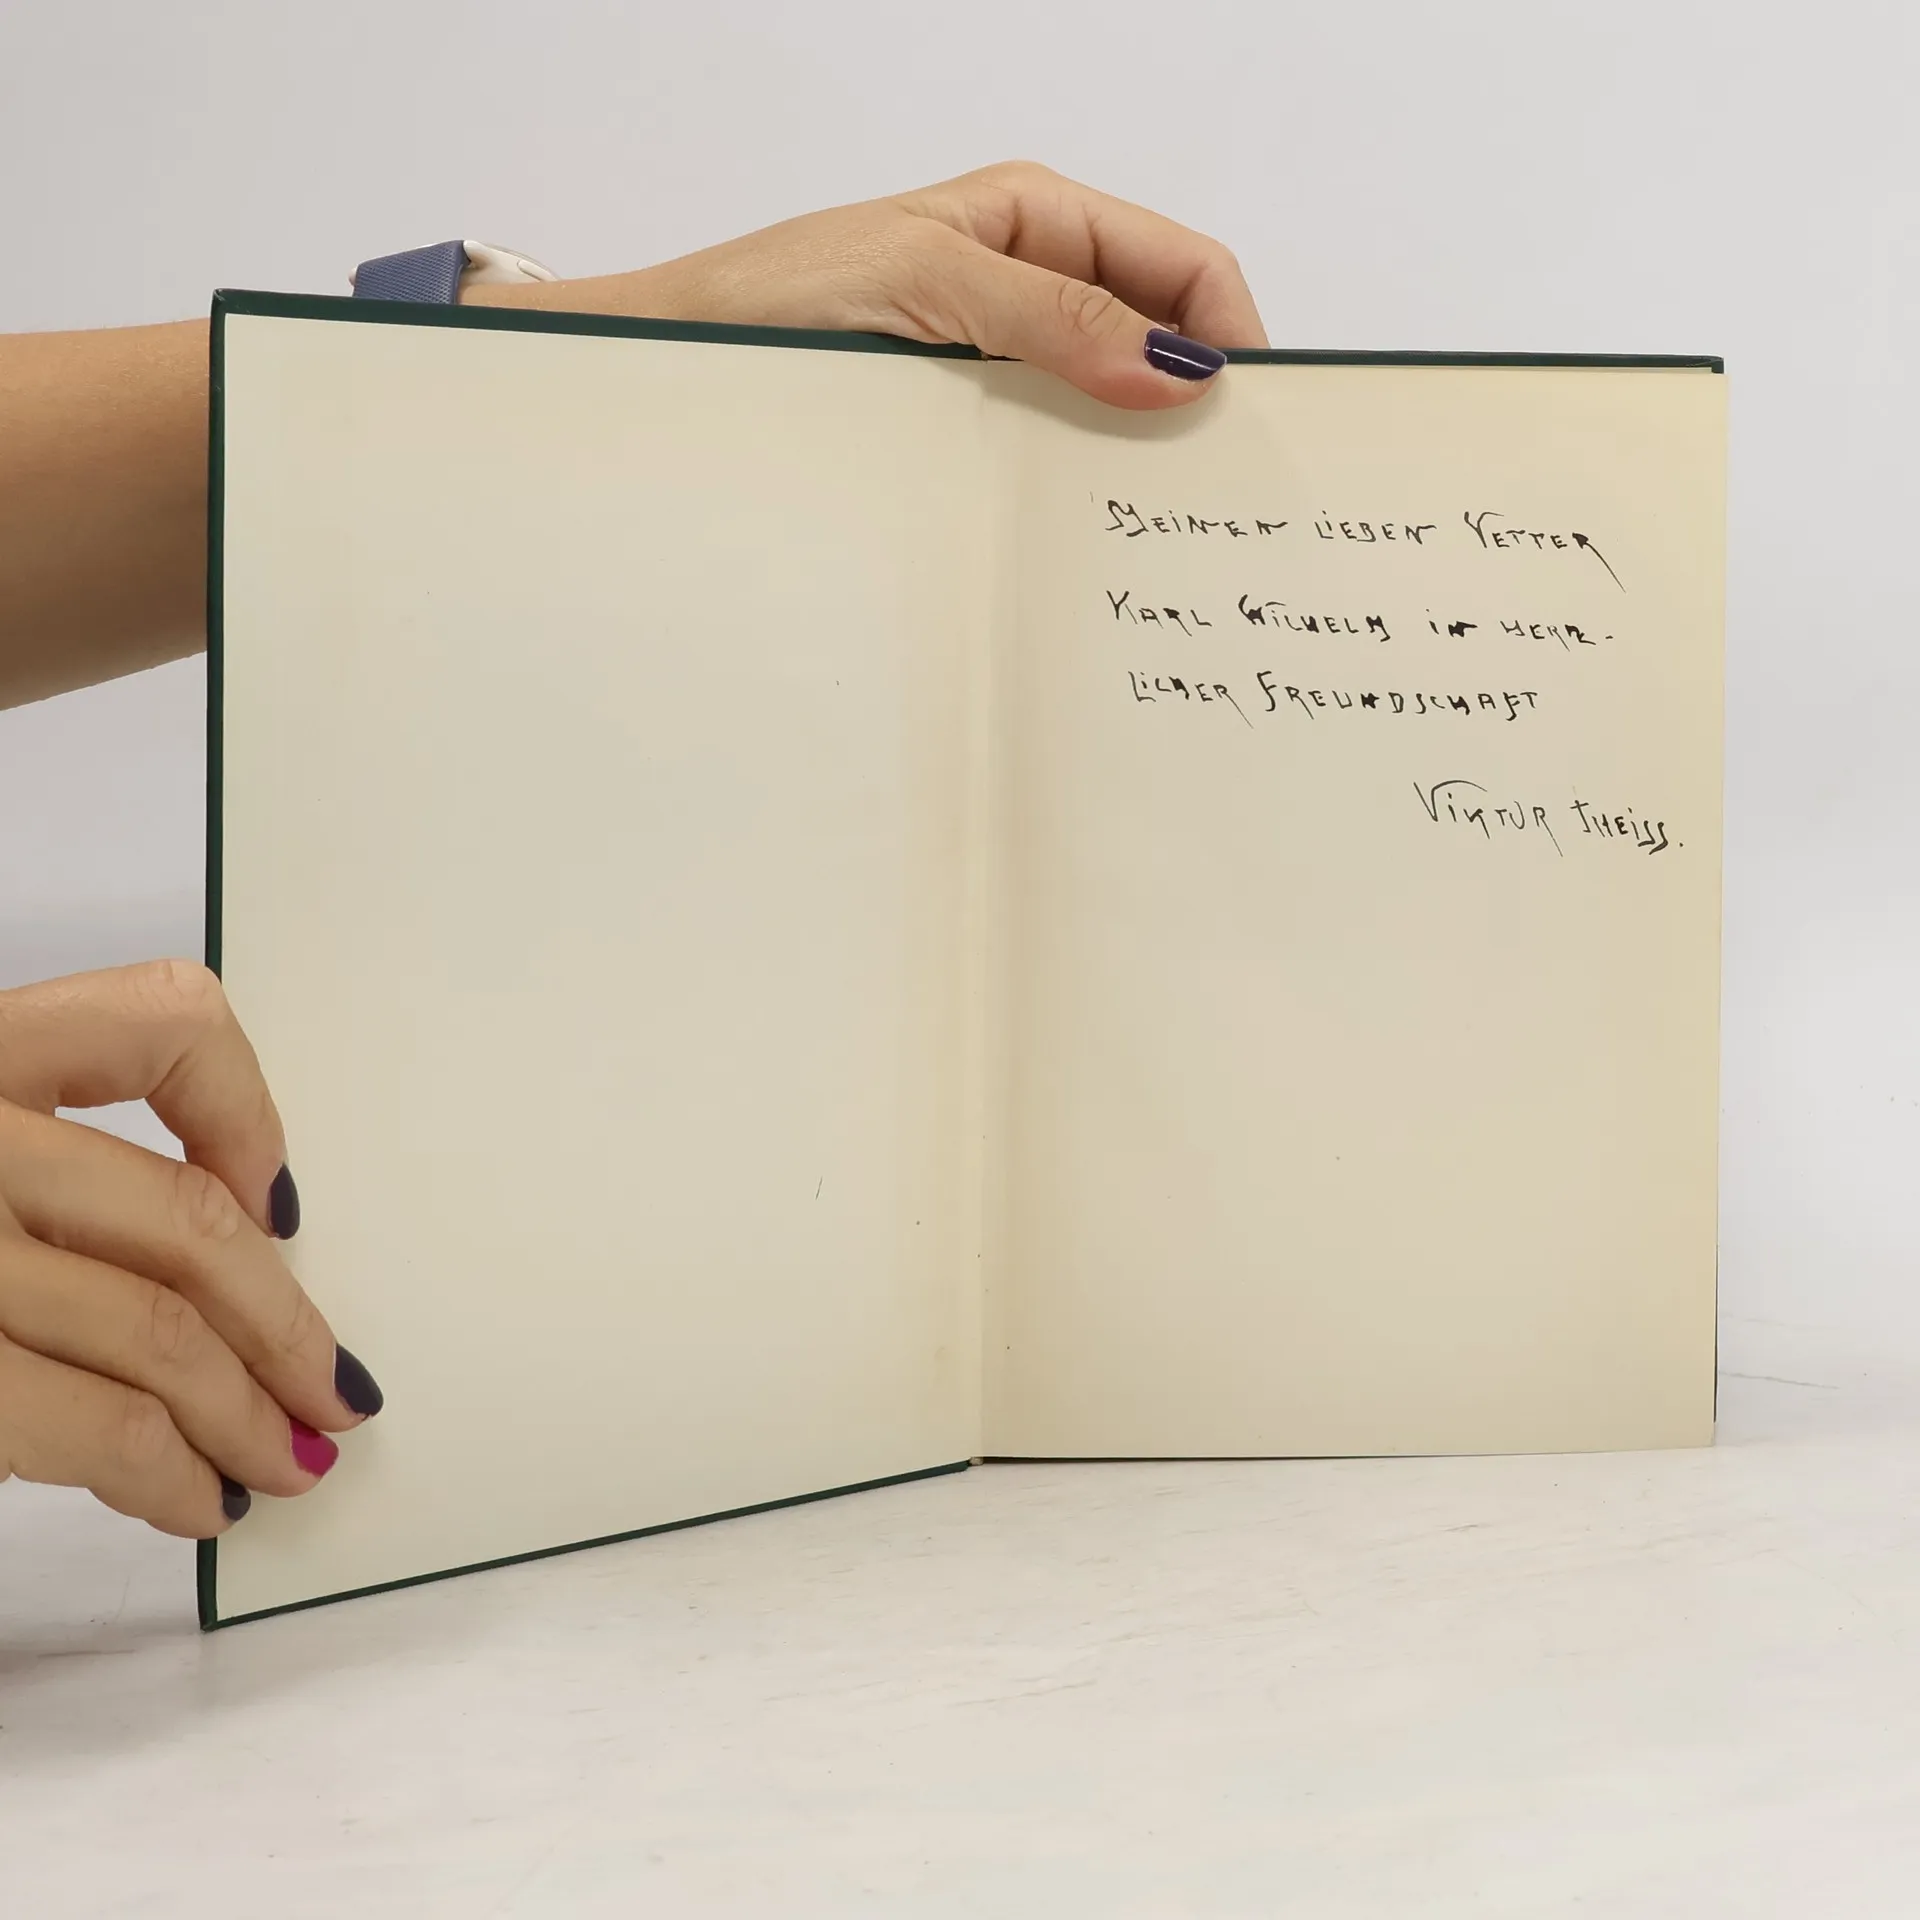 Meinen lieben Vetter
Karl Wilhelm in herz-
licher Freundschaft
Viktor Theiss.